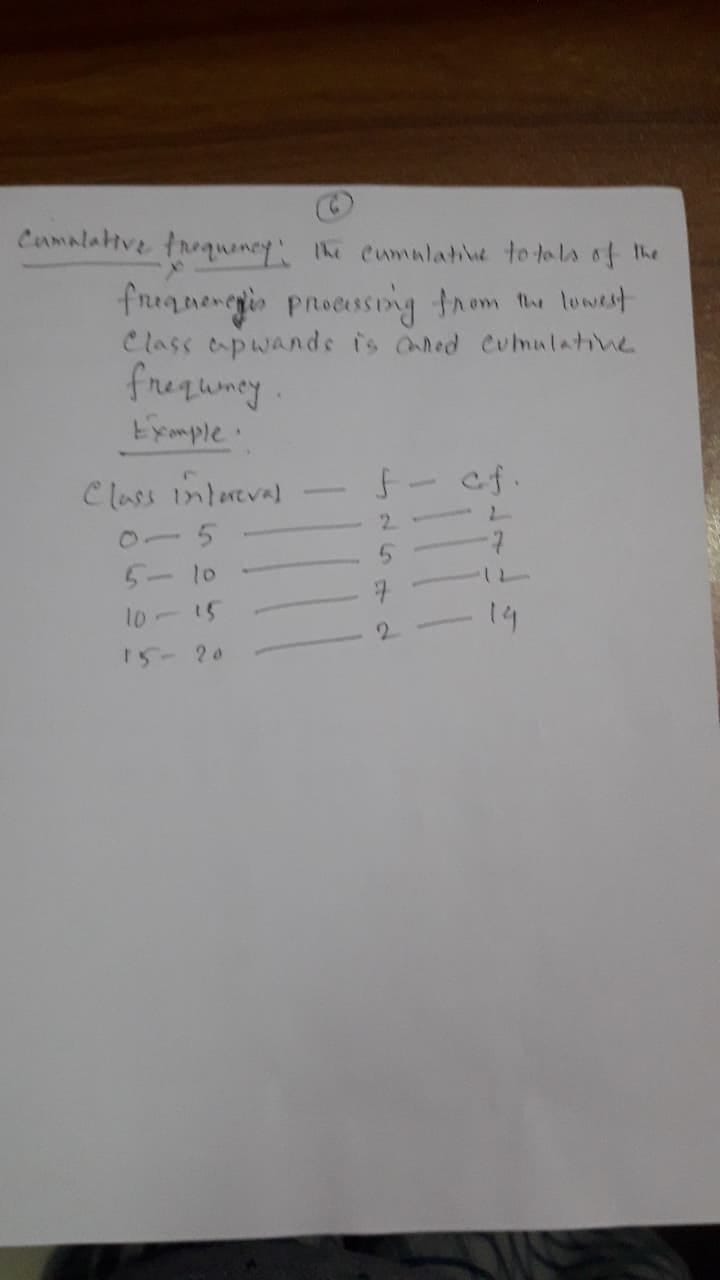 6
Cumalative frequency: The cumulative totals of the
frequencyis processing from the lowest
Class upwards is called cumulative
frequency.
Example.
Class interval — f — cf.
0 — 5 — 2 — 2
5 — 10 — 5 — 7
10 — 15 — 7 — 12
15 — 20 — 2 — 14